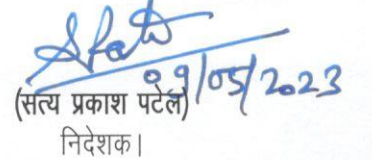 09/05/2023
(सत्य प्रकाश पटेल)
निदेशक।